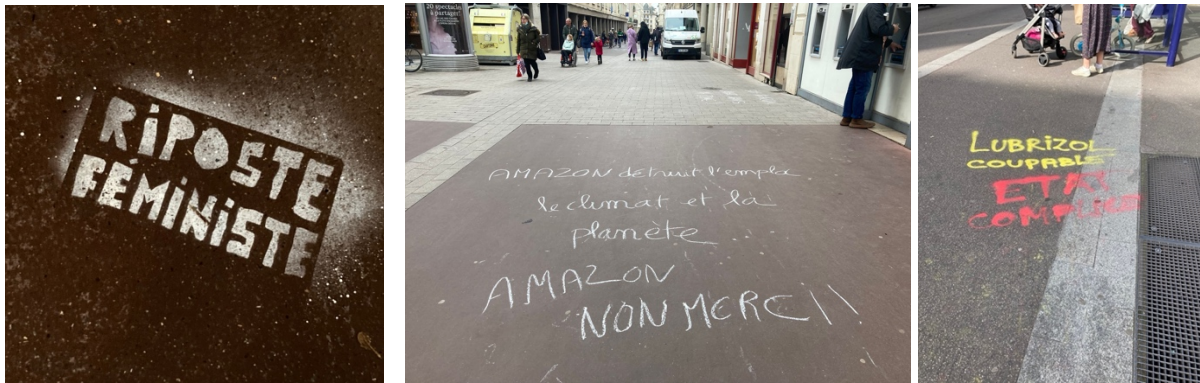 RIPOSTE
FÉMINISTE
20 spectacles
à partager!
AMAZON détruit l'emploi
le climat et la
planète
AMAZON
NON MERCI!
LUBRIZOL
COUPABLE
ETAT
COMPLICE